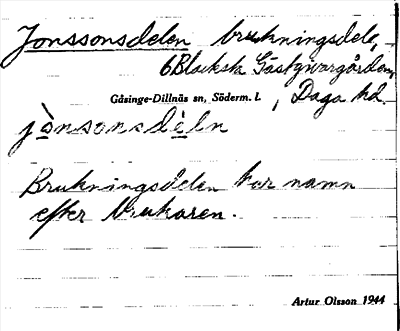 Jonssonsdelen brukningsdel,
6 Blacksta Gästgivargården,
Gåsinge-Dillnäs sn, Söderm. l., Daga hd
jònsonsdèln
Brukningsdelen har namn
efter brukaren.
Artur Olsson 1944